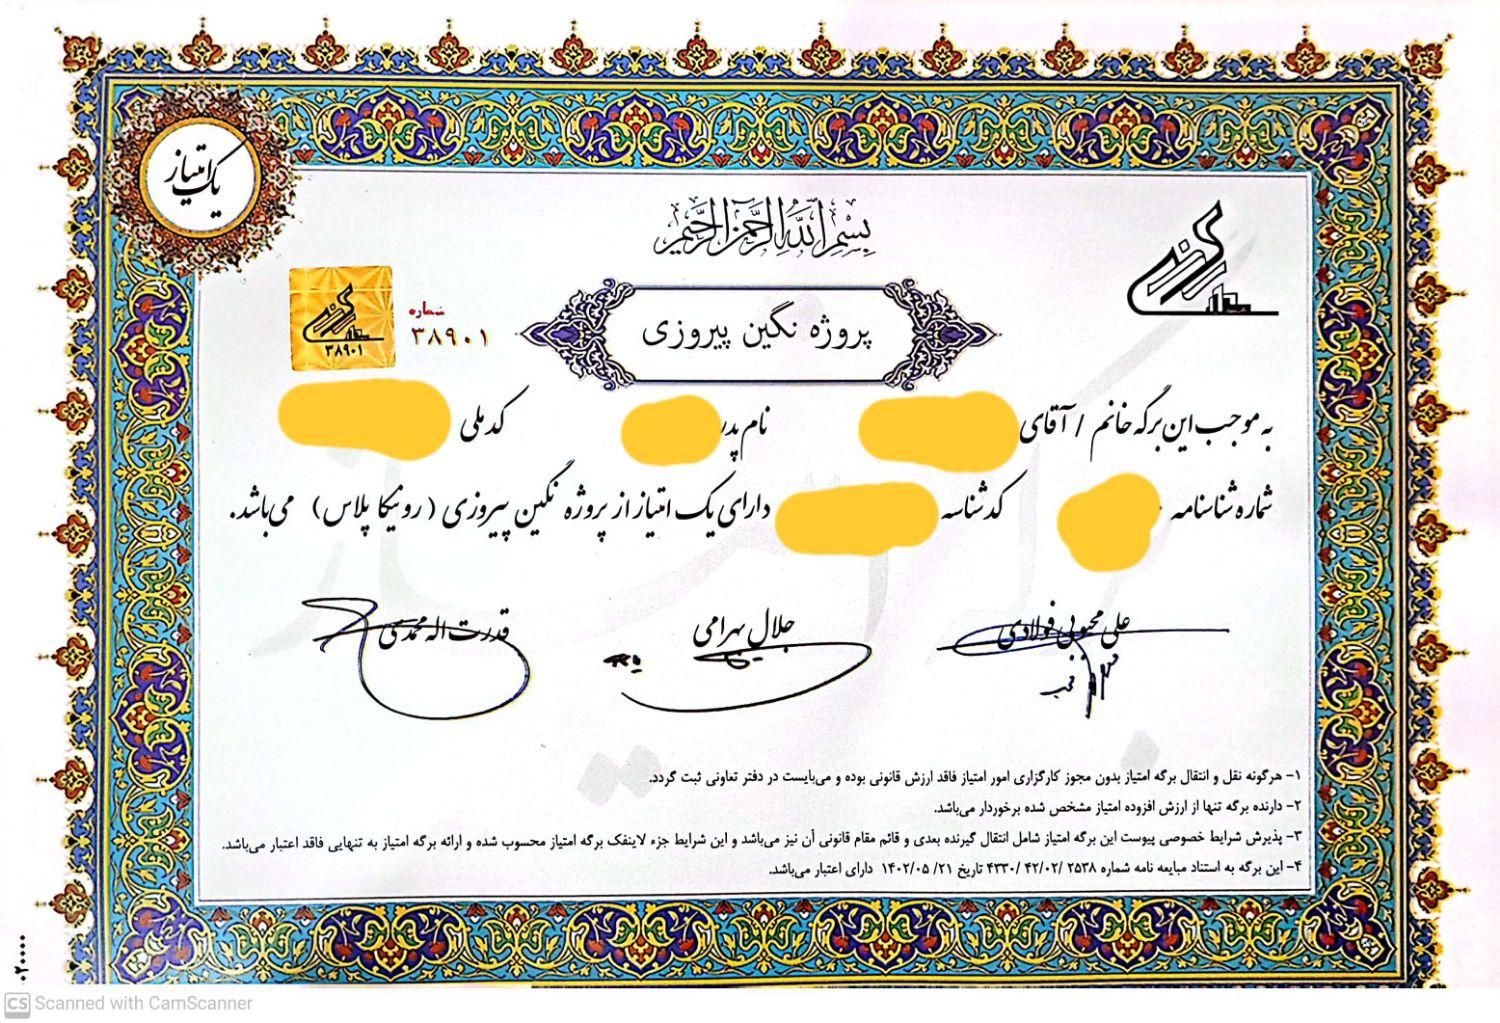 یک امتیاز
بسم الله الرحمن الرحیم
شماره
۳۸۹۰۱
۳۸۹۰۱
پروژه نگین پیروزی
به موجب این برگه خانم / آقای نام پدر کد ملی
شماره شناسنامه کد شناسه دارای یک امتیاز از پروژه نگین پیروزی (رونیکا پلاس) می‌باشد.
علی محبوبی فولادی جلال بهرامی قدرت اله محمدی
۱- هرگونه نقل و انتقال برگه امتیاز بدون مجوز کارگزاری امور امتیاز فاقد ارزش قانونی بوده و می‌بایست در دفتر تعاونی ثبت گردد.
۲- دارنده برگه تنها از ارزش افزوده امتیاز مشخص شده برخوردار می‌باشد.
۳- پذیرش شرایط خصوصی پیوست این برگه امتیاز شامل انتقال گیرنده بعدی و قائم مقام قانونی آن نیز می‌باشد و این شرایط جزء لاینفک برگه امتیاز محسوب شده و ارائه برگه امتیاز به تنهایی فاقد اعتبار می‌باشد.
۴- این برگه به استناد مبایعه نامه شماره ۲۵۳۸ /۴۲/۰۲ /۴۳۳۰ تاریخ ۲۱/ ۰۵/ ۱۴۰۲ دارای اعتبار می‌باشد.
CS Scanned with CamScanner